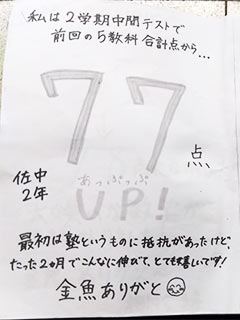 私は2学期中間テストで
前回の5教科合計点から...
77点
あっぷっぷ
UP!
佐中
2年
最初は塾というものに抵抗があったけど、
たった2ヵ月でこんなに伸びて、とても嬉しいです!
金魚ありがと